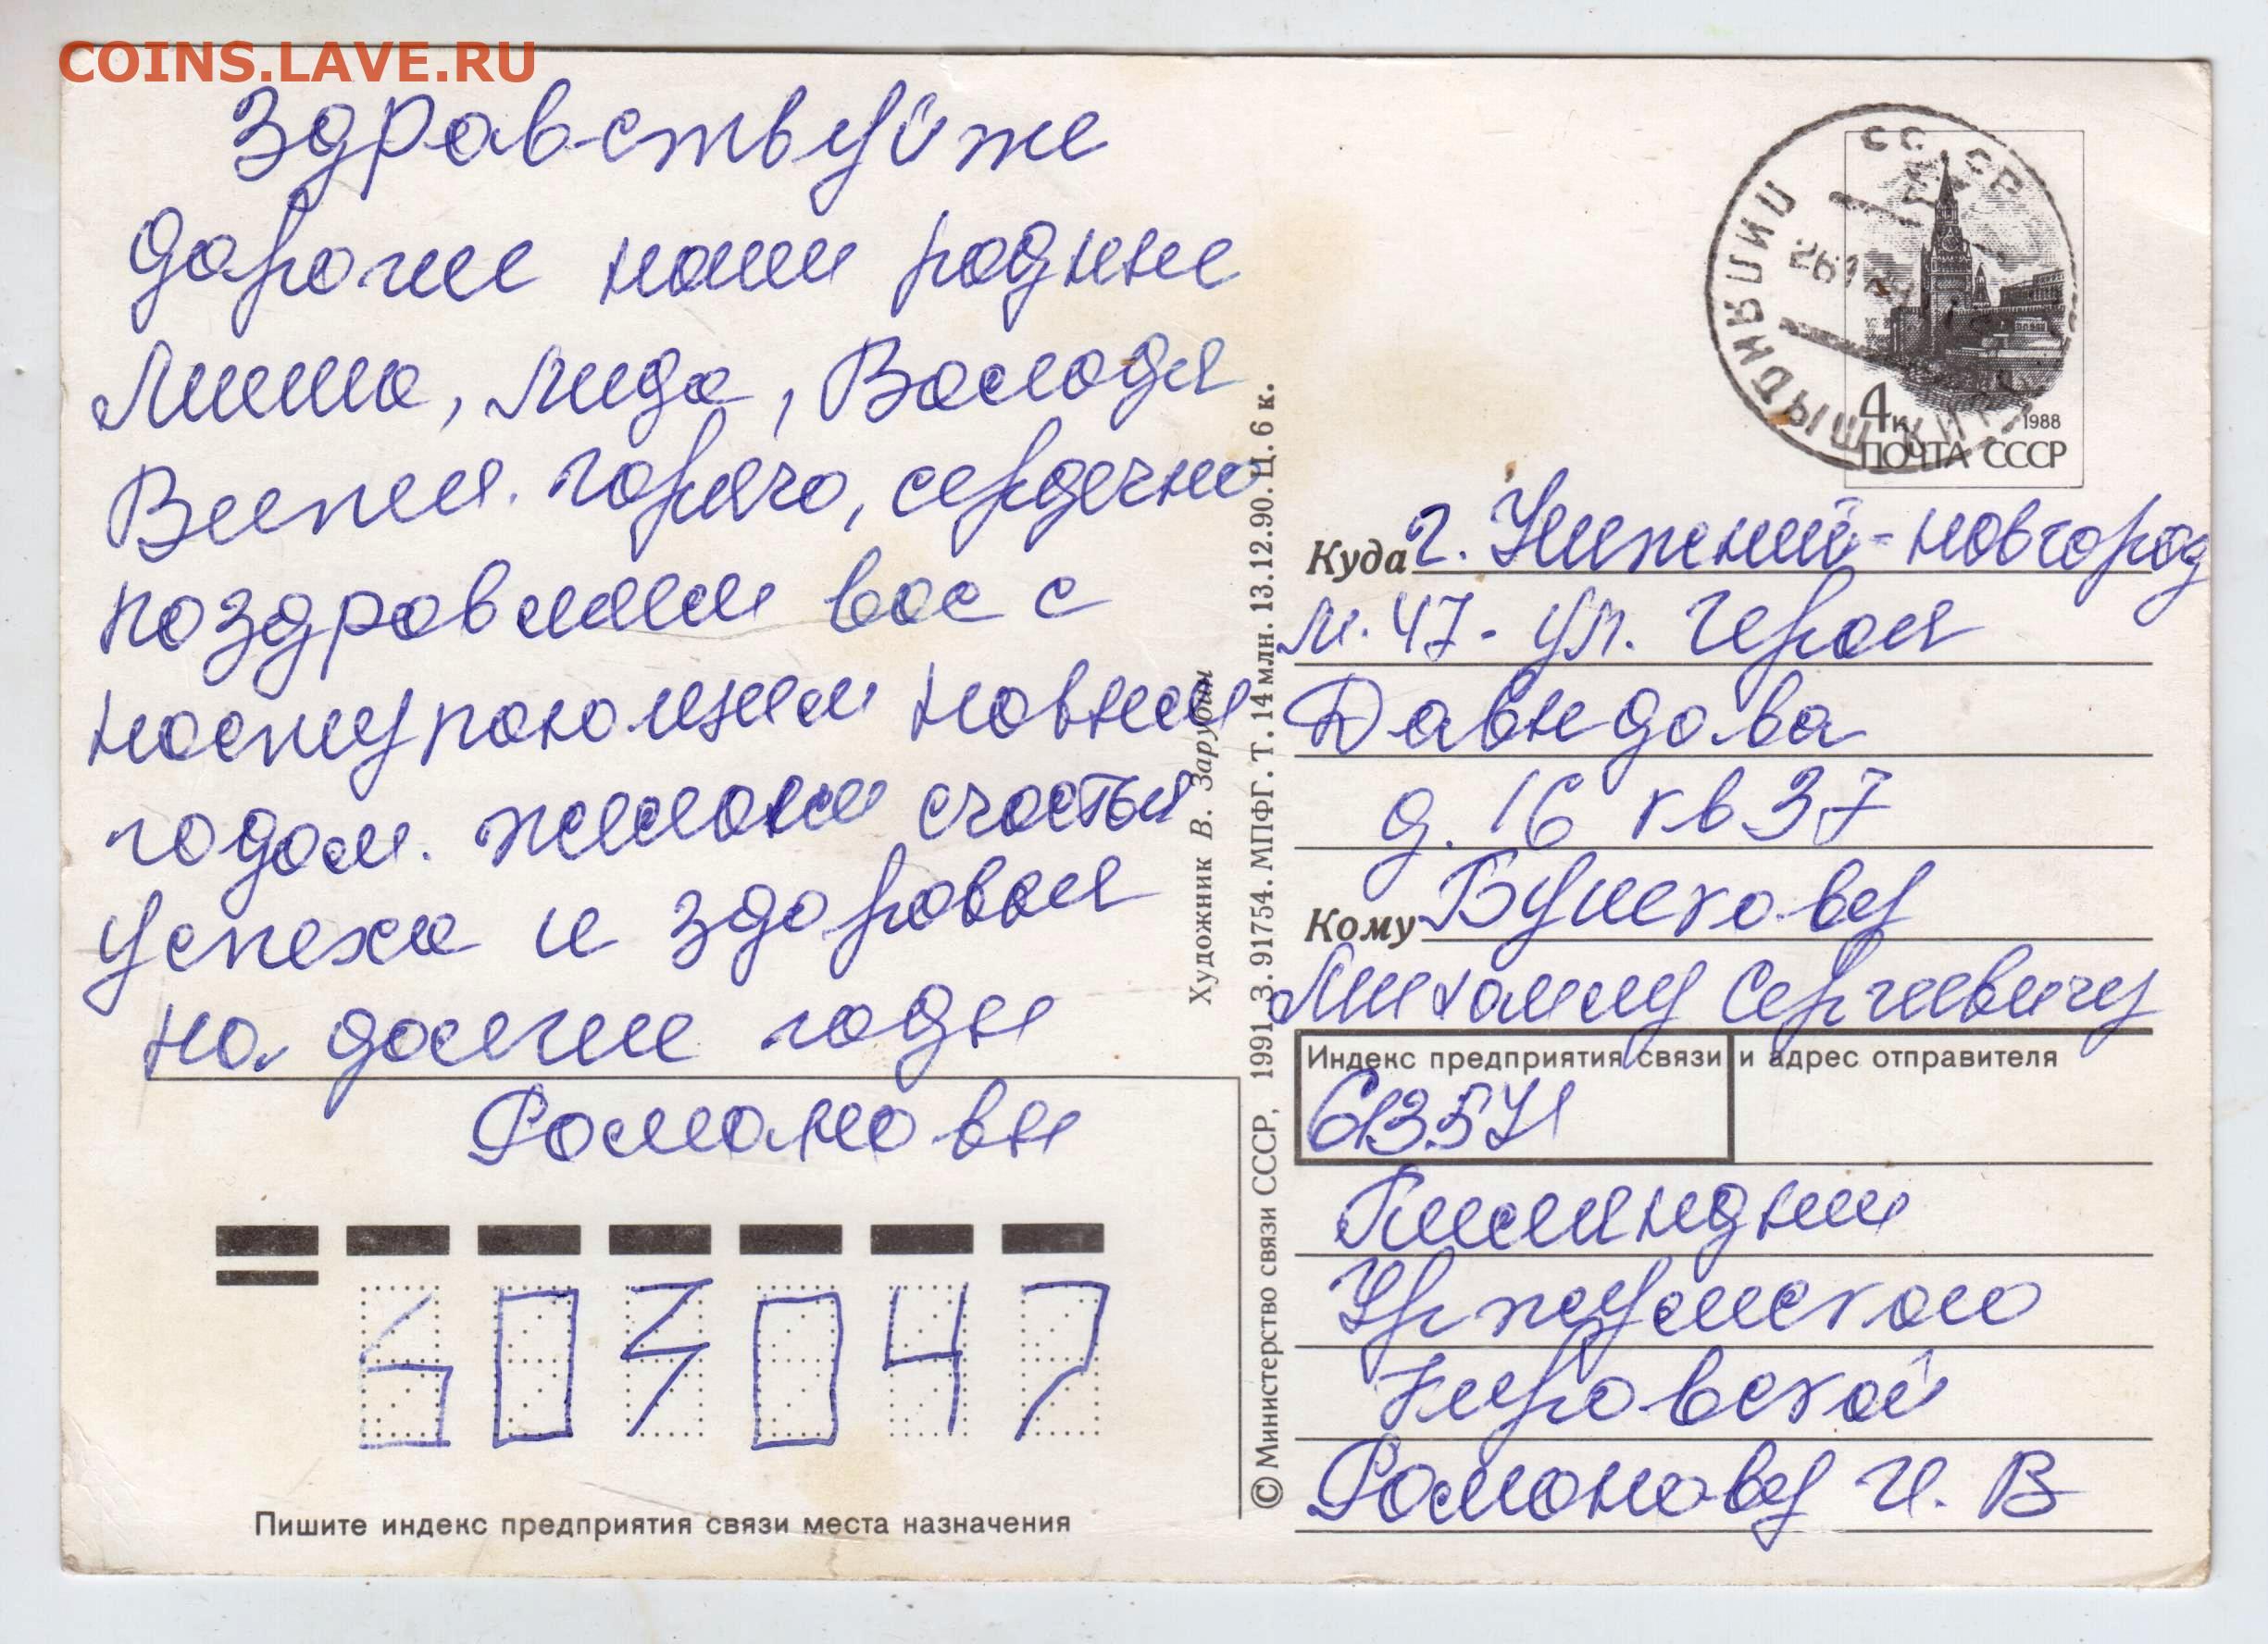 COINS.LAVE.RU
Здравствуйте
дорогие наши родные
Миша, Лида, Володя
Витя. Горячо, сердечно
поздравляем вас с
наступающим новым
годом. желаем счастья
успеха и здоровья
на долгие годы
Романовы
Пишите индекс предприятия связи места назначения
Художник В. Зарубин
© Министерство связи СССР, 1991. З. 91754. МПФГ. Т. 14 млн. 13.12.90. Ц. 6 к.
СССР
26
4к 1988
ПОЧТА СССР
Куда г. Нижний-новгород
м. 47. ул. Героя
Давыдова
д. 16 кв 37
Кому
Михаилу Сергеевичу
Индекс предприятия связи и адрес отправителя
Уржумского
Кировской
Романову И. В
603047